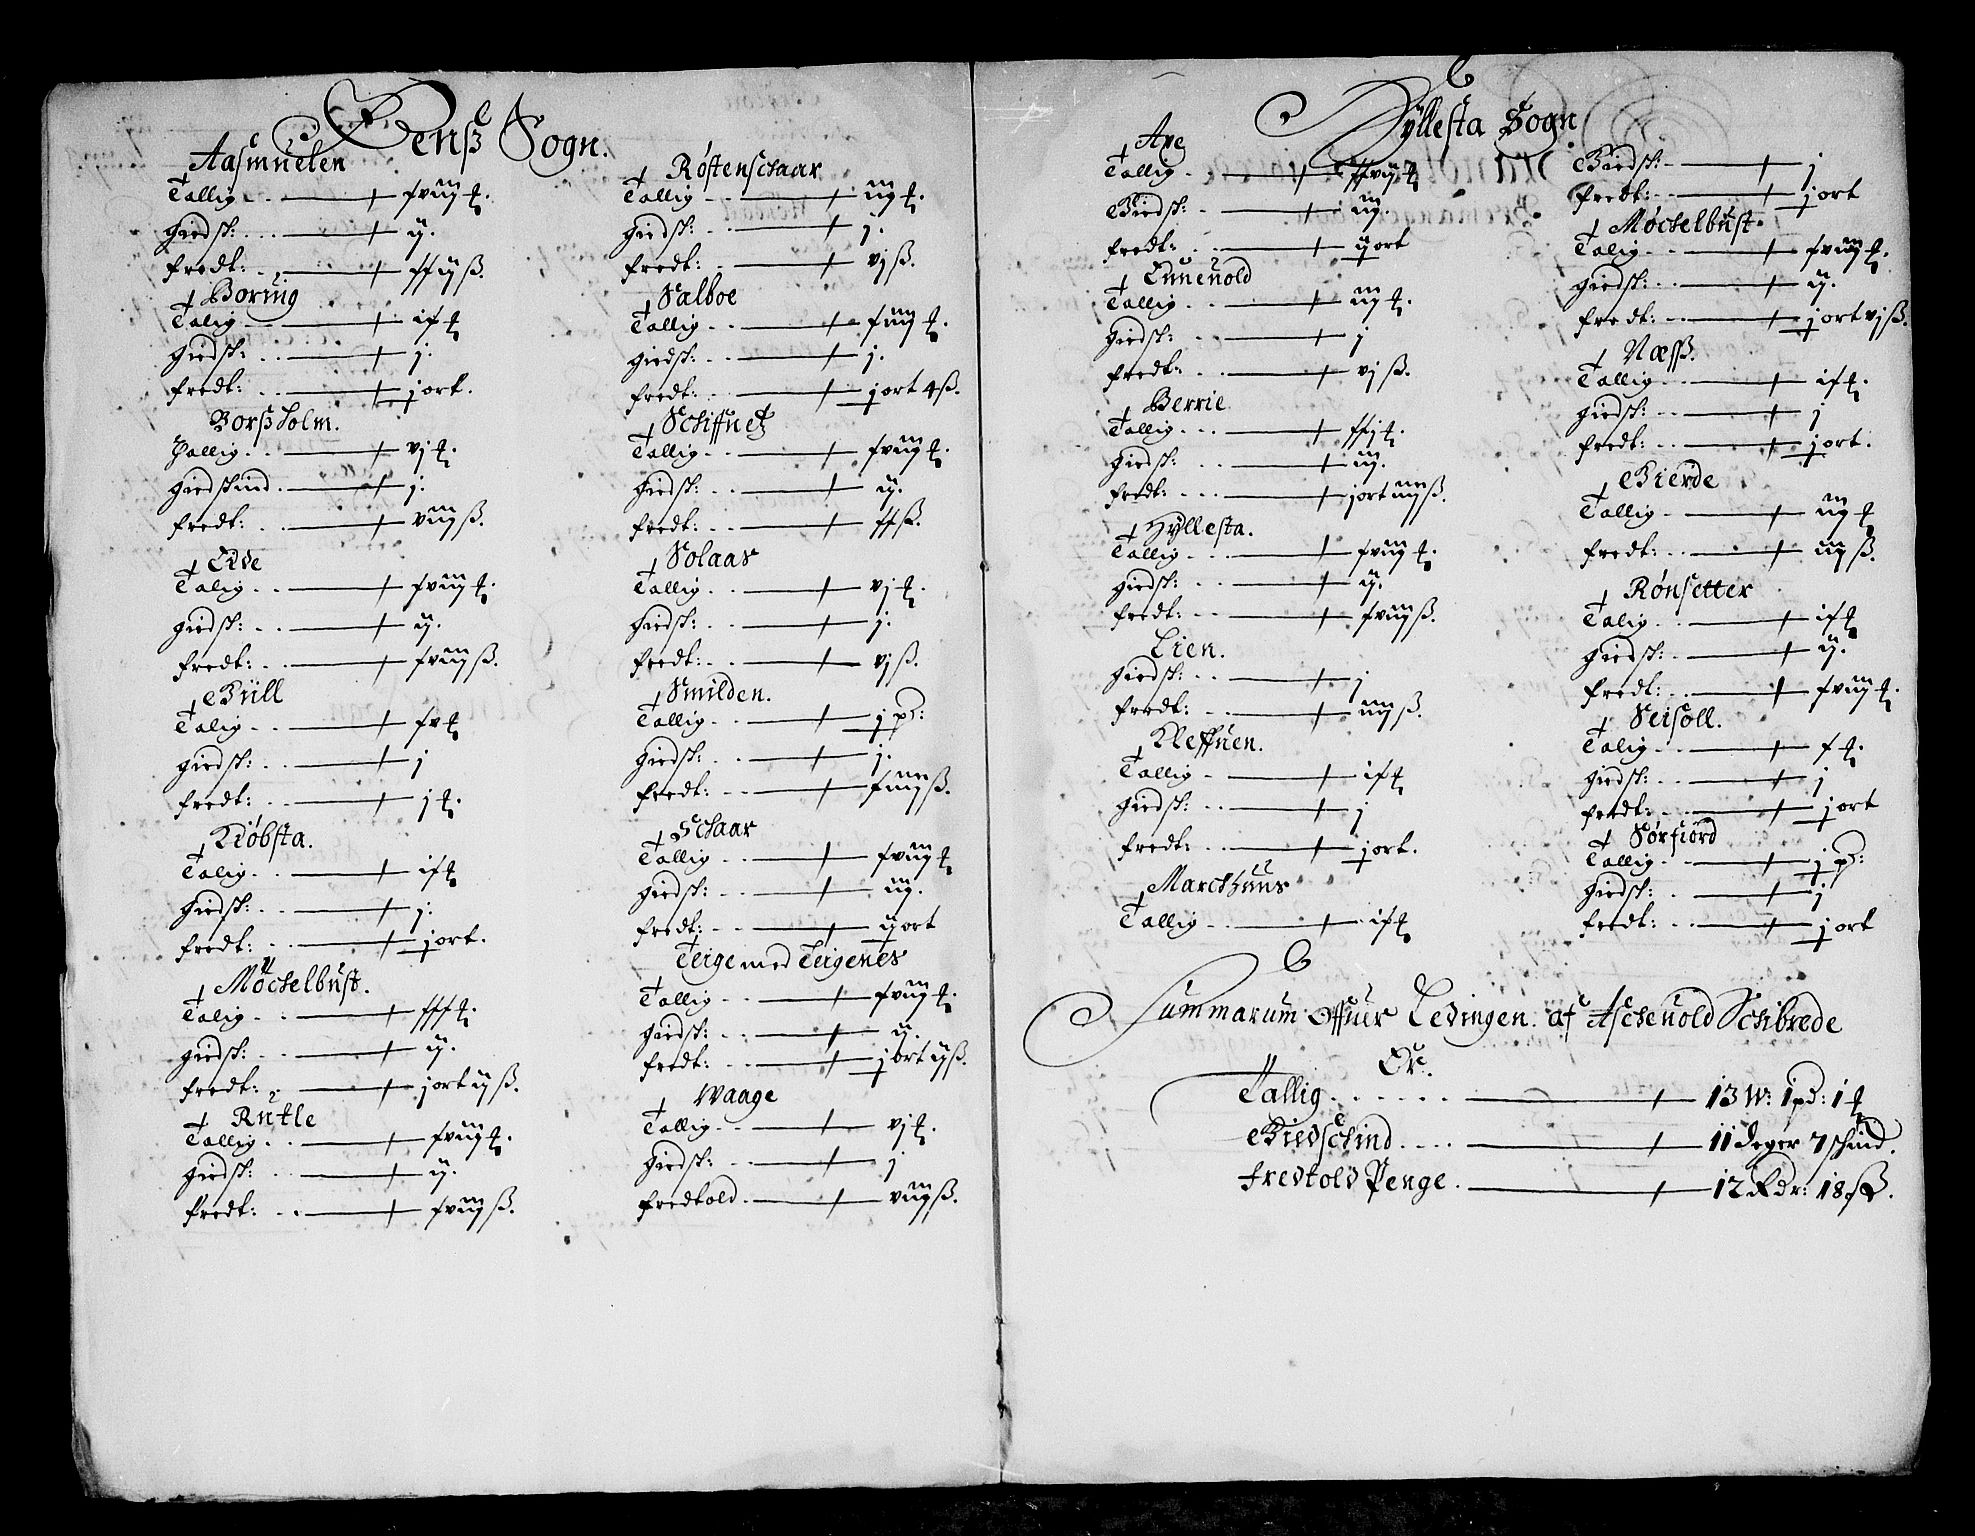 Eenß Sogn.
Aasmuelen
Tallig - xviij ℔.
giedsk: ij.
fredk: xxijß.
Boring
Talig ix ℔
giedsk: j.
fredk: j ort.
Borßholm.
Tallig vj ℔.
giedskind j.
fredk: viijß.
Eide
Talig xviij ℔.
giedsk: ij.
fredk: xviijß.
Büll
Talig xv ℔
giedsk: j
fredk: j ℔.
Kiöbsta.
Talig ix ℔
giedsk: j.
fredk: j ort.
Möckelbust.
Talig xxx ℔.
giedsk: ij.
fredk: j ort ijß.
Rutle
Tallig xviij ℔.
giedsk: ij.
fredk: xviijß.
Röstenschaar
Tallig iij ℔.
giedsk: j.
fredk: vjß.
Salboe
Tallig xiij ℔.
giedsk: j.
fredk: j ort 4ß.
Schiffnes
Tallig xviij ℔.
giedsk: ij.
fredk: xxß.
Solaas
Tallig vj ℔.
giedsk: j.
fredk: vjß.
Smilden.
Tallig j pd:
giedsk: j.
fredk: xiiijß.
Schaar
Tallig xviij ℔
giedsk: iij.
fredk: ij ort
Teige med Teigenes
Tallig xviij ℔.
giedsk: ij.
fredk: j ort ijß.
Waage
Tallig vj ℔.
giedsk: j
fredkold viijß.
Hyllesta Sogn
Ape
Tallig xxvij ℔
Giedsk: iij.
fredk: ij ort
Ennenold
Tallig iij ℔.
giedsk: j
fredk: vjß.
Berrie
Tallig xxj ℔.
giedsk: iij.
fredk: j ort iiijß.
Hyllesta.
Tallig xviij ℔.
giedsk: ij.
fredk: xviijß.
Lien.
giedsk: j
fredk: iiijß.
Kleffuen.
Tallig ix ℔
giedsk: j
fredk: j ort.
Marckhuus
Tallig ix ℔
Giedsk: j
fredk: j ort
Möckelbust.
Tallig xviij ℔.
giedsk: ij.
fredk: j ort vjß.
Næsß.
Tallig ix ℔.
giedsk: j
fredk: j ort.
Gierde
Tallig iij ℔
fredk: iijß.
Rönsetter
Talig ix ℔
giedsk: ij.
fredk: xviij ℔.
Seisöll.
Talig x ℔.
giedsk: j
fredk: j ort
Sörfiord
Tallig j pd:
giedsk: j
fredk: j ort
Summarum Offuer Ledingen af Aschenold Schibrede
Er.
Tallig 13 W: 1 pd: 1 ℔
Giedschind 11 deger 7 schind.
Fredtold Penge 12 Rdr: 18 ß.